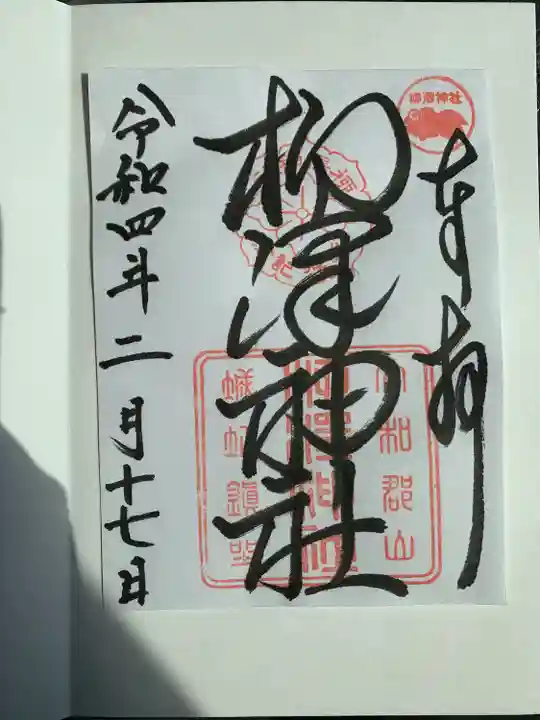 柳澤神社
奉拝
柳澤神社
大和郡山
柳澤神社
令和四年二月十七日